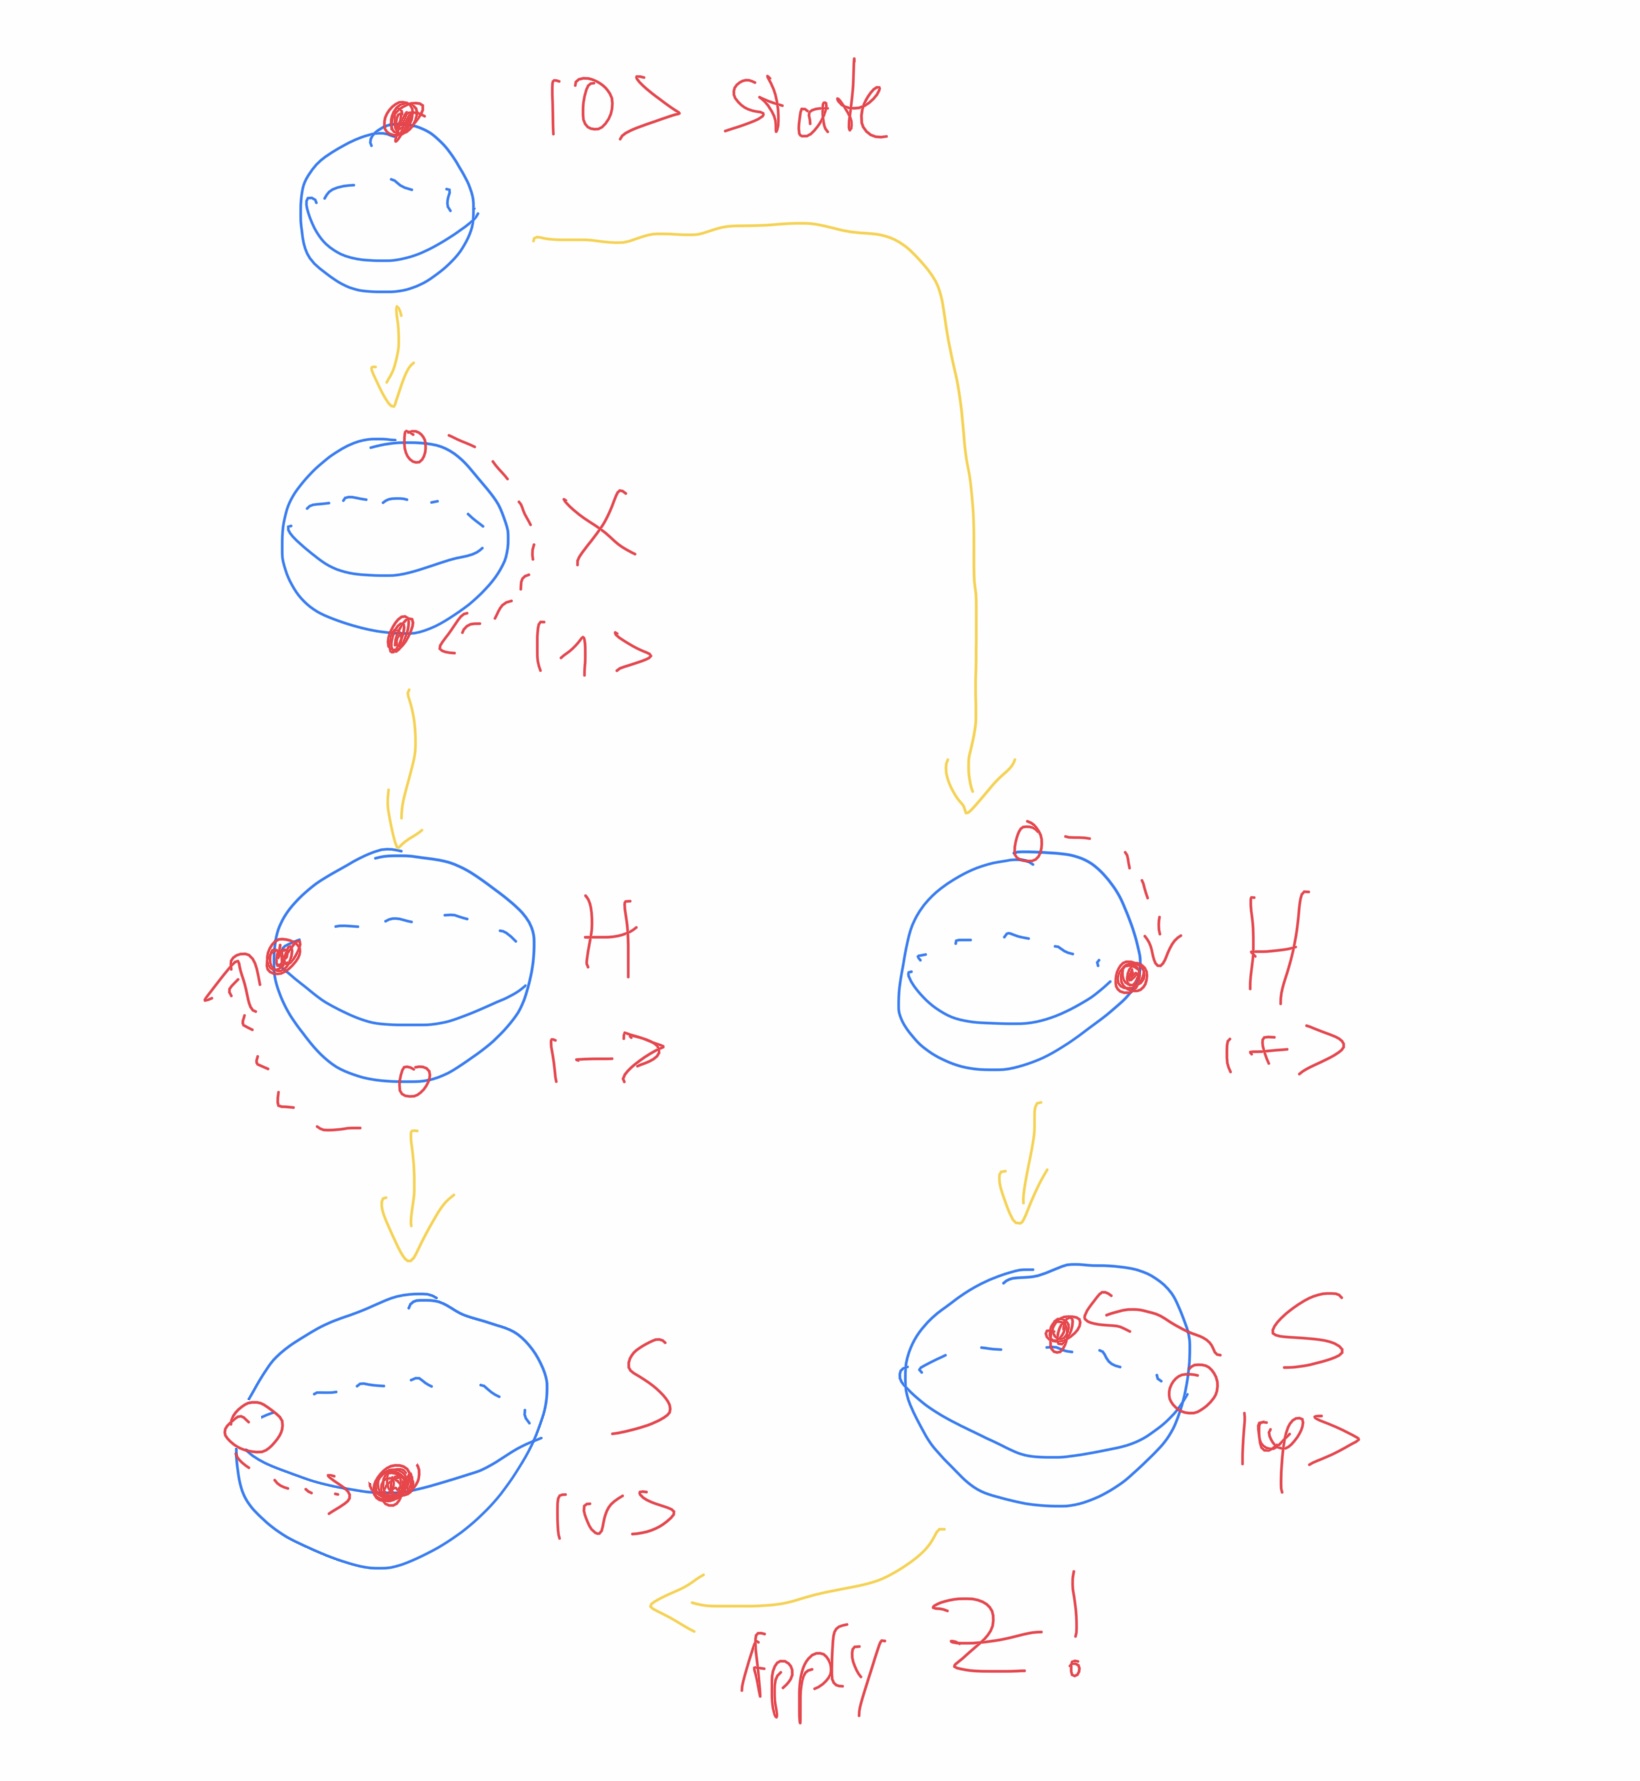 |0> state
X
|1>
H
|->
H
|+>
S
|v>
S
|φ>
Apply Z!